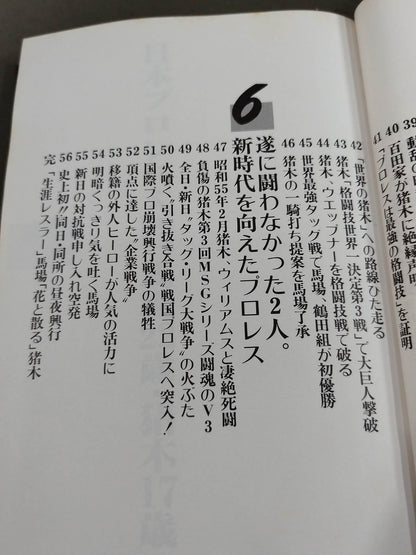 39
動乱の
40 百田家が猪木に絶縁声明
41 「プロレスは最強の格闘技」を証明
42 「世界の猪木」への路線ひた走る
43 猪木“格闘技世界一決定第3戦”で大巨人撃破
44 猪木・ウエップナーを格闘技戦で破る
45 世界最強タッグ戦で馬場、鶴田組が初優勝
46 猪木の一騎打ち提案を馬場了承
6
遂に闘わなかった2人。
新時代を向えたプロレス
47 昭和55年2月猪木・ウィリアムスと凄絶死闘
48 負傷の猪木第3回MSGシリーズ闘魂のV3
49 全日・新日“タッグ・リーグ大戦争”の火ぶた
50 火噴く“引き抜き合戦”戦国プロレスへ突入!
51 国際プロ崩壊興行戦争の犠牲
52 頂点に達した“企業戦争”
53 移籍の外人ヒーローが人気の活力に
54 明暗くっきり気を吐く馬場
55 新日の対抗戦申し入れ突発
56 史上初“同日・同所の昼夜興行
完 「生涯レスラー」馬場「花と散る」猪木